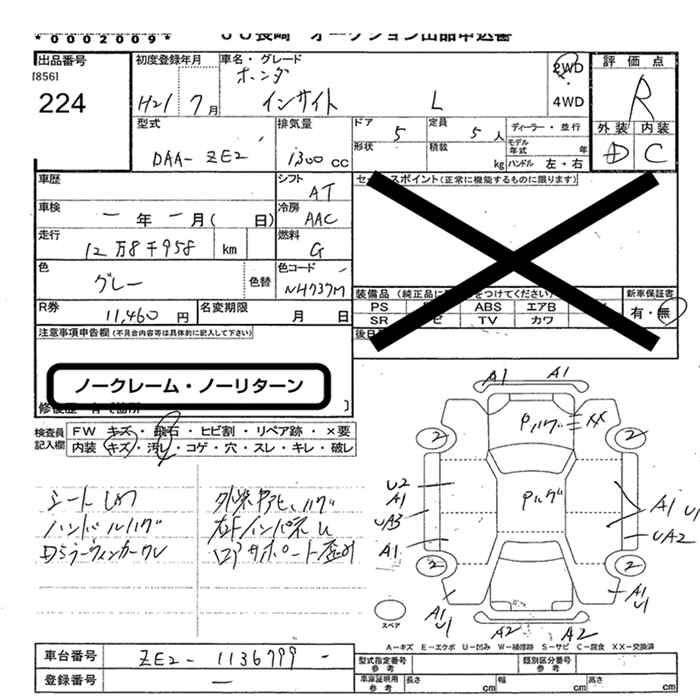 *0002009*
JU長崎 オークション出品申込書
出品番号
[856]
224
初度登録年月
H21 7月
車名・グレード
ホンダ
インサイト L
2WD
4WD
評価点
R
外装 内装
C
型式
DAA-ZE2
排気量
1300 CC
ドア
5
定員
5 人
形状
積載
kg
ディーラー・並行
モデル年式 年
ハンドル 左・右
車歴
シフト
AT
車検
一 年 一 月( 日)
冷房
AAC
走行
12万8千958 km
燃料
G
色
グレー
色替
色コード
NH737M
R券
11,460 円
名変期限
月 日
セールスポイント(正常に機能するものに限ります)
PS ABS エアB
SR TV カワ
新車保証書
有・無
注意事項申告欄(不具合内容等は具体的に記入して下さい)
ノークレーム・ノーリターン
検査員記入欄
FW キズ・飛石・ヒビ割・リペア跡・×要
内装 キズ・汚レ・コゲ・穴・スレ・キレ・破レ
シートしわ
ハンドルハゲ
外装キズ、ハゲ
A1 A1
Pハゲ XX
2 2
Pハゲ
U2
A1
UA3
A1
A1 U1
UA2
2 2
A1
U1
A1
U1
A2 A2
スペア
A-キズ E-エクボ U-凹み W-補修跡 S-サビ C-腐食 XX-交換済
車台番号
ZE2-1136799
登録番号
一
型式指定番号
参考
類別区分番号
参考
車庫証明用
参考
長さ cm 幅 cm 高さ cm